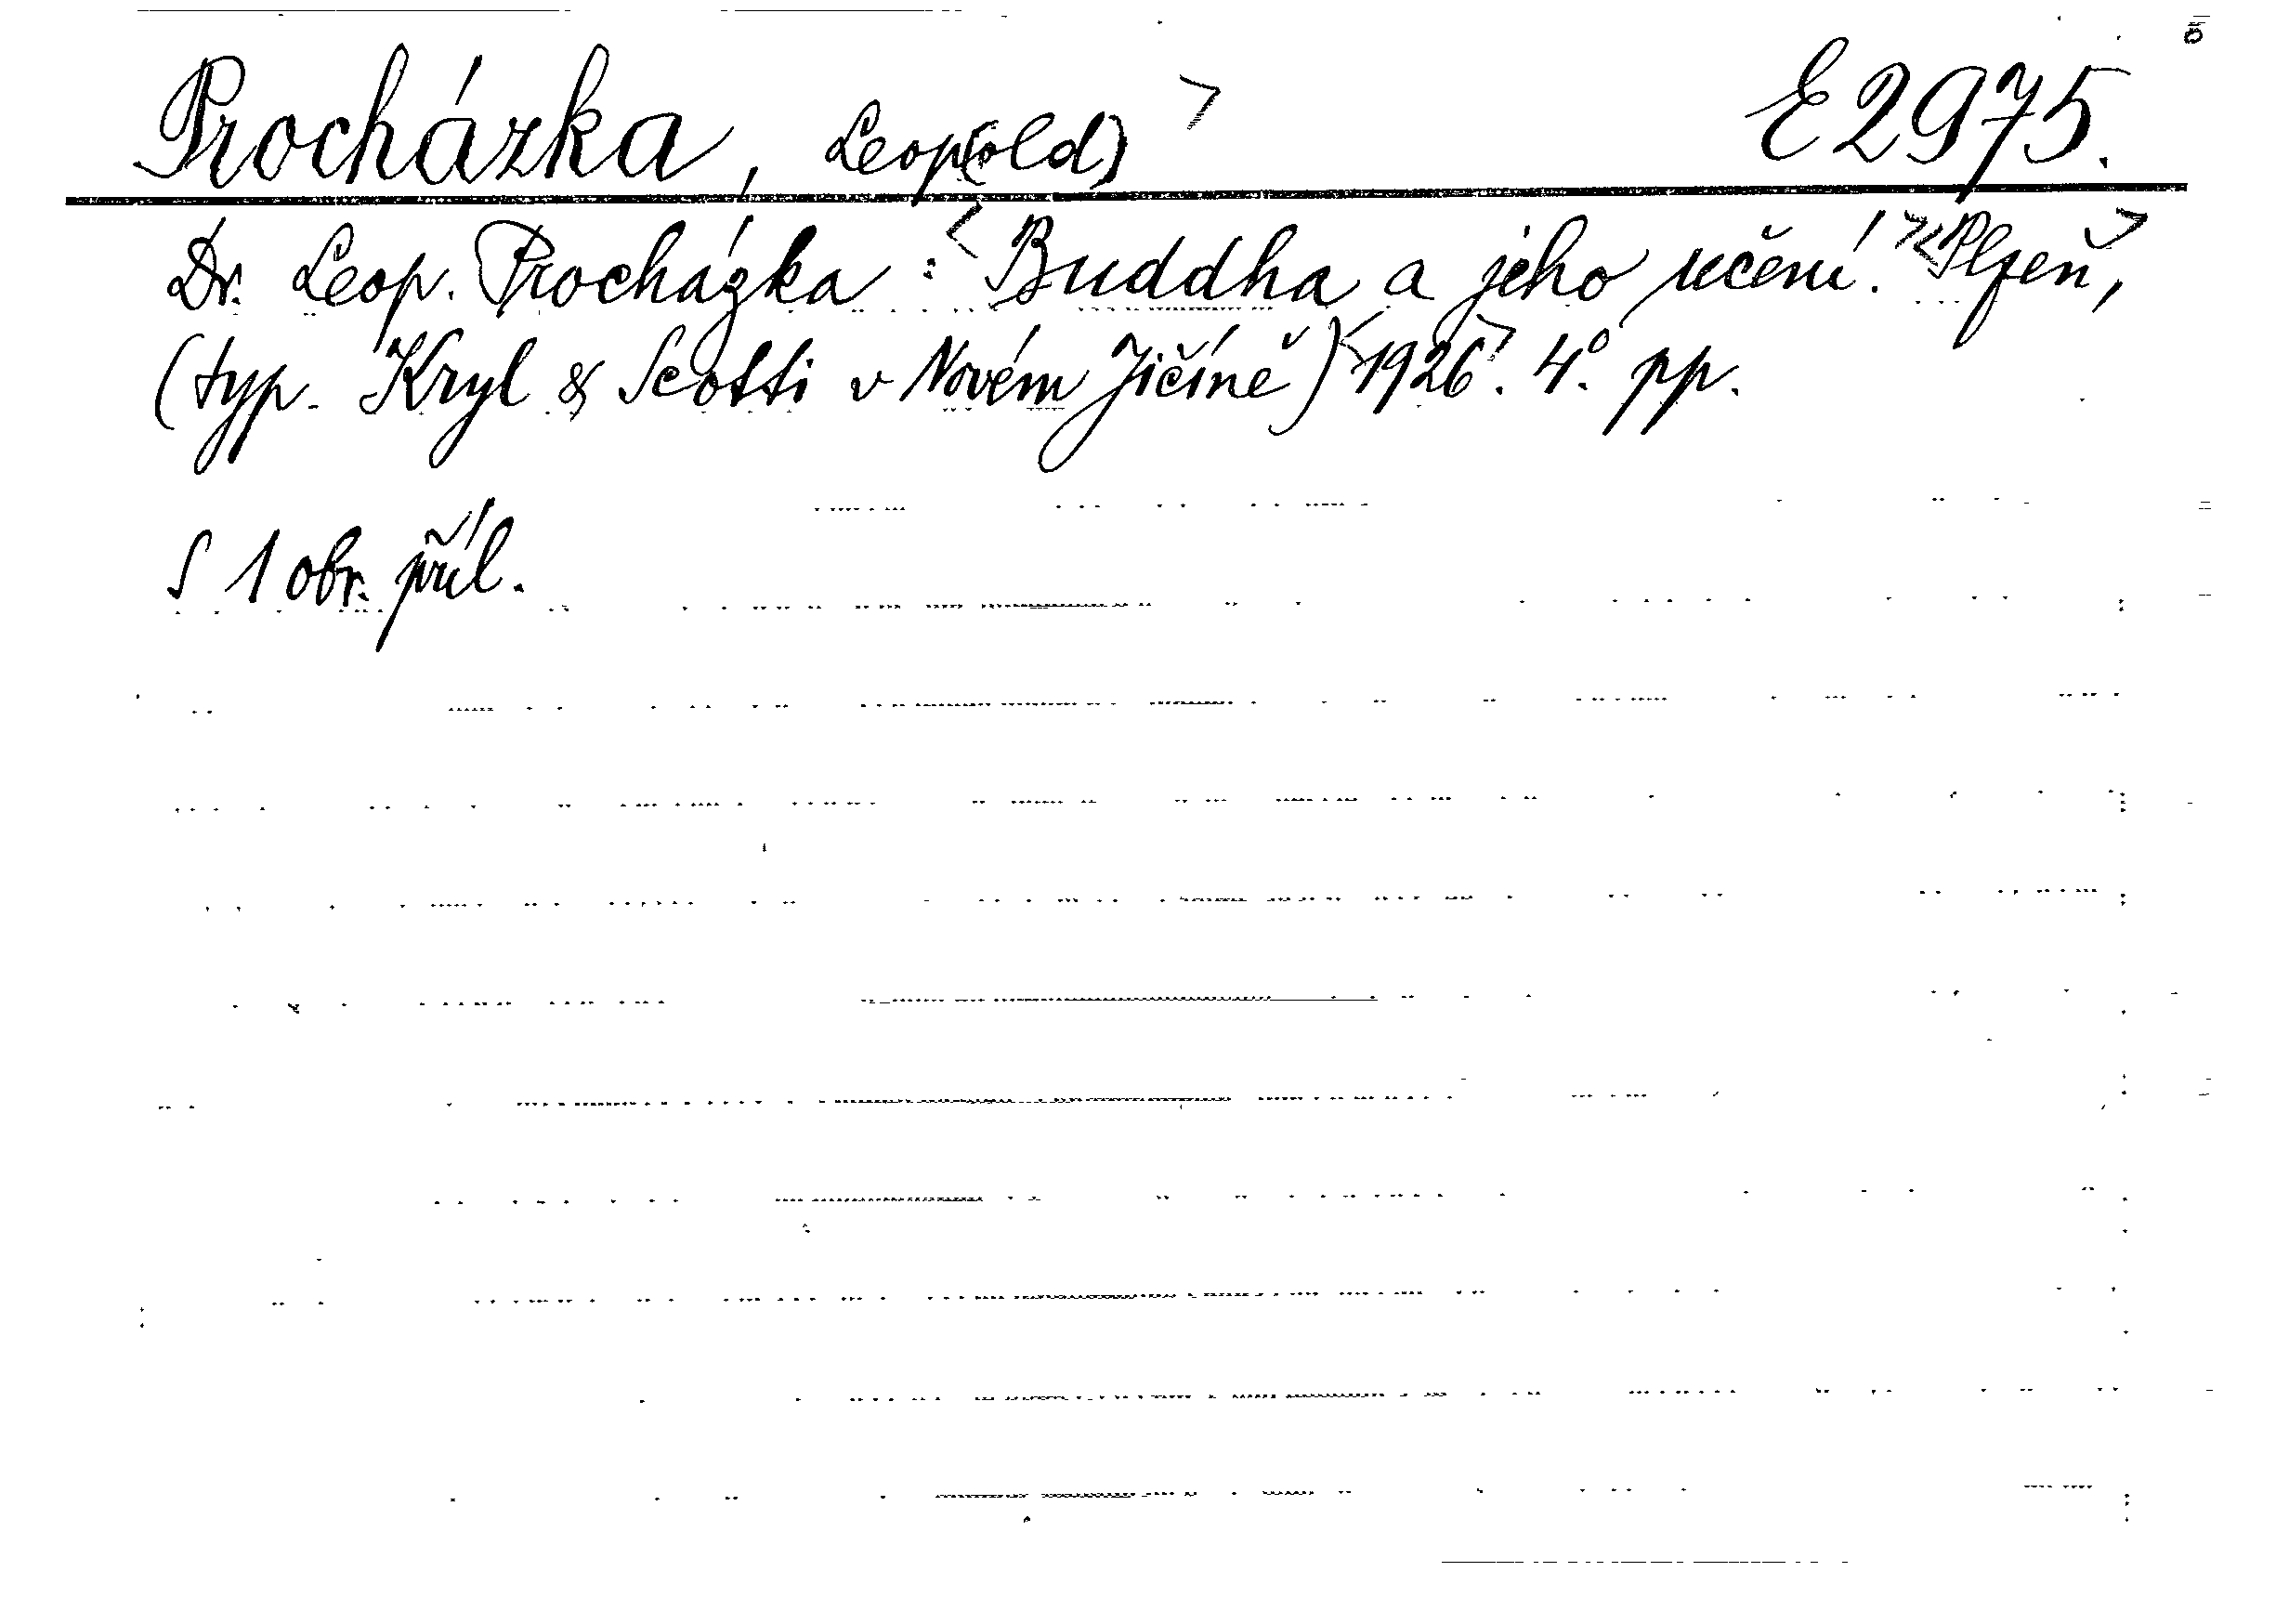 Procházka, Leop(old)> E 2975.
Dr. Leop. Procházka : <Buddha a jeho učení.> <Plzeň,>
(typ. Kryl & Scotti v Novém Jičíně) <1926>. 4°. pp.
S 1 obr. příl.